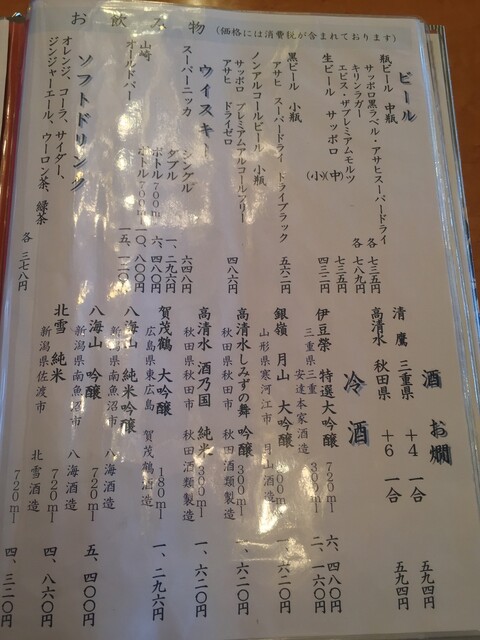 お飲み物(価格には消費税が含まれております)
ビール
瓶ビール 中瓶
サッポロ黒ラベル・アサヒスーパードライ 各 七三五円
キリンラガー
エビス・ザプレミアムモルツ 各 七八九円
生ビール サッポロ (中) 七三五円
(小) 四三二円
黒ビール 小瓶
アサヒ スーパードライ ドライブラック 五六二円
ノンアルコールビール 小瓶
サッポロ プレミアムアルコールフリー
アサヒ ドライゼロ 四八六円
ウイスキー
スーパーニッカ シングル 六四八円
ダブル 一、二九六円
山崎 ボトル 700ml 六、四八〇円
オールドパー ボトル 700ml 一〇、八〇〇円
一五、一二〇円
ソフトドリンク
オレンジ、コーラ、サイダー、
ジンジャーエール、ウーロン茶、緑茶 各 三七八円
酒 お燗
清鷹 三重県 +4 一合 五九四円
高清水 秋田県 +6 一合 五九四円
冷酒
伊豆榮 特選大吟醸 720ml 六、四八〇円
三重県三重 安達本家酒造 300ml 二、一六〇円
銀嶺 月山 大吟醸 300ml 一、六二〇円
山形県寒河江市 月山酒造
高清水しみずの舞 吟醸 300ml 一、六二〇円
秋田県秋田市 秋田酒類製造
高清水 酒乃国 純米 300ml 一、六二〇円
秋田県秋田市 秋田酒類製造
賀茂鶴 大吟醸 180ml 一、二九六円
広島県東広島 賀茂鶴酒造
八海山 純米吟醸
新潟県南魚沼市 八海酒造 720ml 五、四〇〇円
八海山 吟醸
新潟県南魚沼市 八海酒造 720ml 四、八六〇円
北雪 純米
新潟県佐渡市 北雪酒造 720ml 四、三二〇円